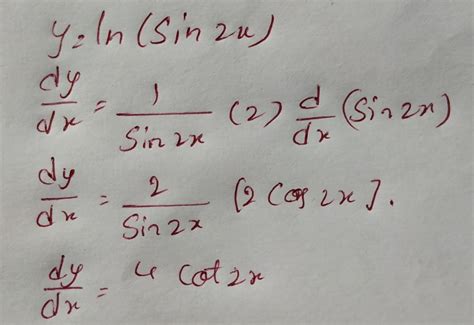 y = ln (Sin 2x)
dy/dx = 1/Sin 2x (2) d/dx (Sin 2x)
dy/dx = 2/Sin 2x [2 Cos 2x].
dy/dx = 4 Cot 2x